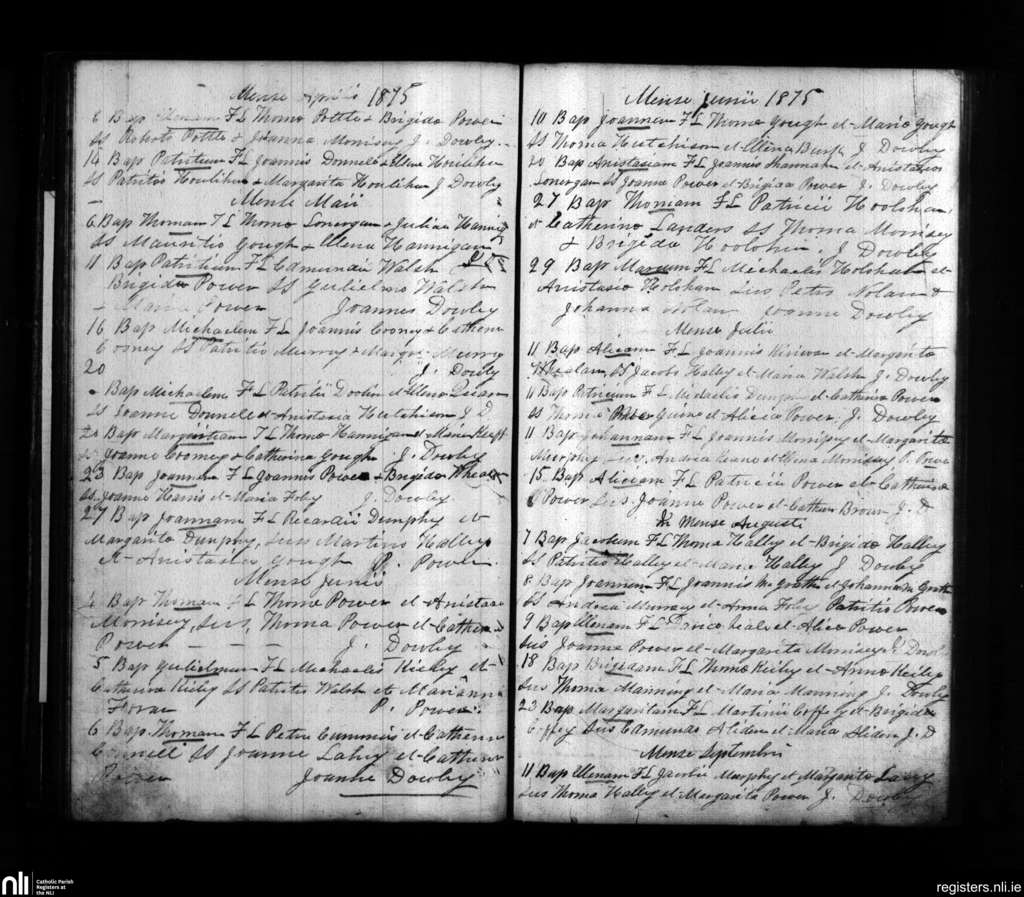 Mense Aprilis 1875
6 Bap Elenam F L Thomo Pottle & Brigida Power
SS Roberto Pottle & Joanna Morrisey J. Dowley
14 Bap Patritium F L Joannis Donnelo & Elena Houlihen
SS Patritio Houlihen & Margarita Houlihen J Dowley
Mense Maii
6 Bap Thomam F L Thomo Lonergan & Juliea Hannig
SS Mauritio Gough & Elena Hannigan
11 Bap Patritium F L Edmundii Walsh
Brigida Power SS Gulielmo Walsh
& Maria Power Joannes Dowley
16 Bap Michaelem F L Joannis Cooney & Cathene
Cooney SS Patritio Murrey & Margt Murrey
20 J. Dowly
Bap Michaelem F L Patritii Doolin et Elena
SS Joanne Donnelo et Anistasia Hutchison J D
Bap Margaritam F L Thomo Hannigan et Maria Keeff
Joanne Cooney & Catherina Gough J. Dowley
23 Bap Joannem F L Joannis Power & Brigida Whealan
SS. Joanne Hearis et Maria Foley J. Dowley
27 Bap Joannam F L Ricardii Dunphy et
Margarita Dunphy, Suss Martino Halley
et Anistatia Gough P. Power
Mense Junis
4 Bap Thomam F L Thomo Power et Anistasa
Morrisey, Sus, Thoma Power et Catherin
Power J. Dowley
5 Bap Gulielmum F L Michaelis Kieley et
Catherina Kieley SS Patritio Walsh et Marianna
P. Power
6 Bap Thomam F L Petri Cummins et Catherine
Connell SS Joanne Lahey et Catherine
Power Joanne Dowley
Mense Junii 1875
10 Bap Joannem F L Thomo Gough et Maria Gough
SS Thoma Hutchison et Elena Burk J Dowley
20 Bap Anistasiam F L Joannis Shannahan et Anistasia
Lonergan SS Joanne Power et Brigida Power J. Dowley
27 Bap Thomam F L Patricii Hoolohan
et Catherina Landers SS Thoma Morrisey
& Brigida Hoolohen J Dowley
29 Bap Mariam F L Michaelis Holohan et
Anistasia Holohan Sus Petro Nolan &
Johanna Nolan Joanne Dowley
Mense Julii
11 Bap Aliciam F L Joannis Kirwan et Margarita
Whealan, SS Jacobo Halley et Maria Walsh J. Dowley
11 Bap Patricium F L Michaelis Dunphy et Catherina Power
SS Thoma Power Quine et Alicia Power. J. Dowley
11 Bap Johannam F L Joannis Morrisey et Margarita
Murphy Sus. Andrea Keane et Elena Morrisey P. Power
15 Bap Aliciam F L Patricii Power et Catherina
Power Sus Joanne Power et Cathern Brown J. D
In Mense Augusti
7 Bap Jacobum F L Thoma Halley et Brigida Halley
SS Patritio Halley et Maria Halley J Dowley
8 Bap Joannem F L Joannis McGrath et Johanna McGrath
SS Andrea Murray et Anna Foley Patritio Power
9 Bap Elenam F L Davico Neale et Alice Power
Sus Joanne Power et Margarita Morrisey J Dowley
18 Bap Brigidam F L Thomo Kieley et Anna Kieley
Sus Thoma Manning et Maria Manning J. Dowley
23 Bap Margaritam F L Martinii Coffey et Brigida
Coffey Sus Edmundo Aliden et Maria Aliden J. D
Mense Septembris
11 Bap Elenam F L Jacobii Murphy et Margarita Lacey
Sus Thoma Halley et Margarita Power J. Dowley
nli
Catholic Parish
Registers at
the NLI
registers.nli.ie